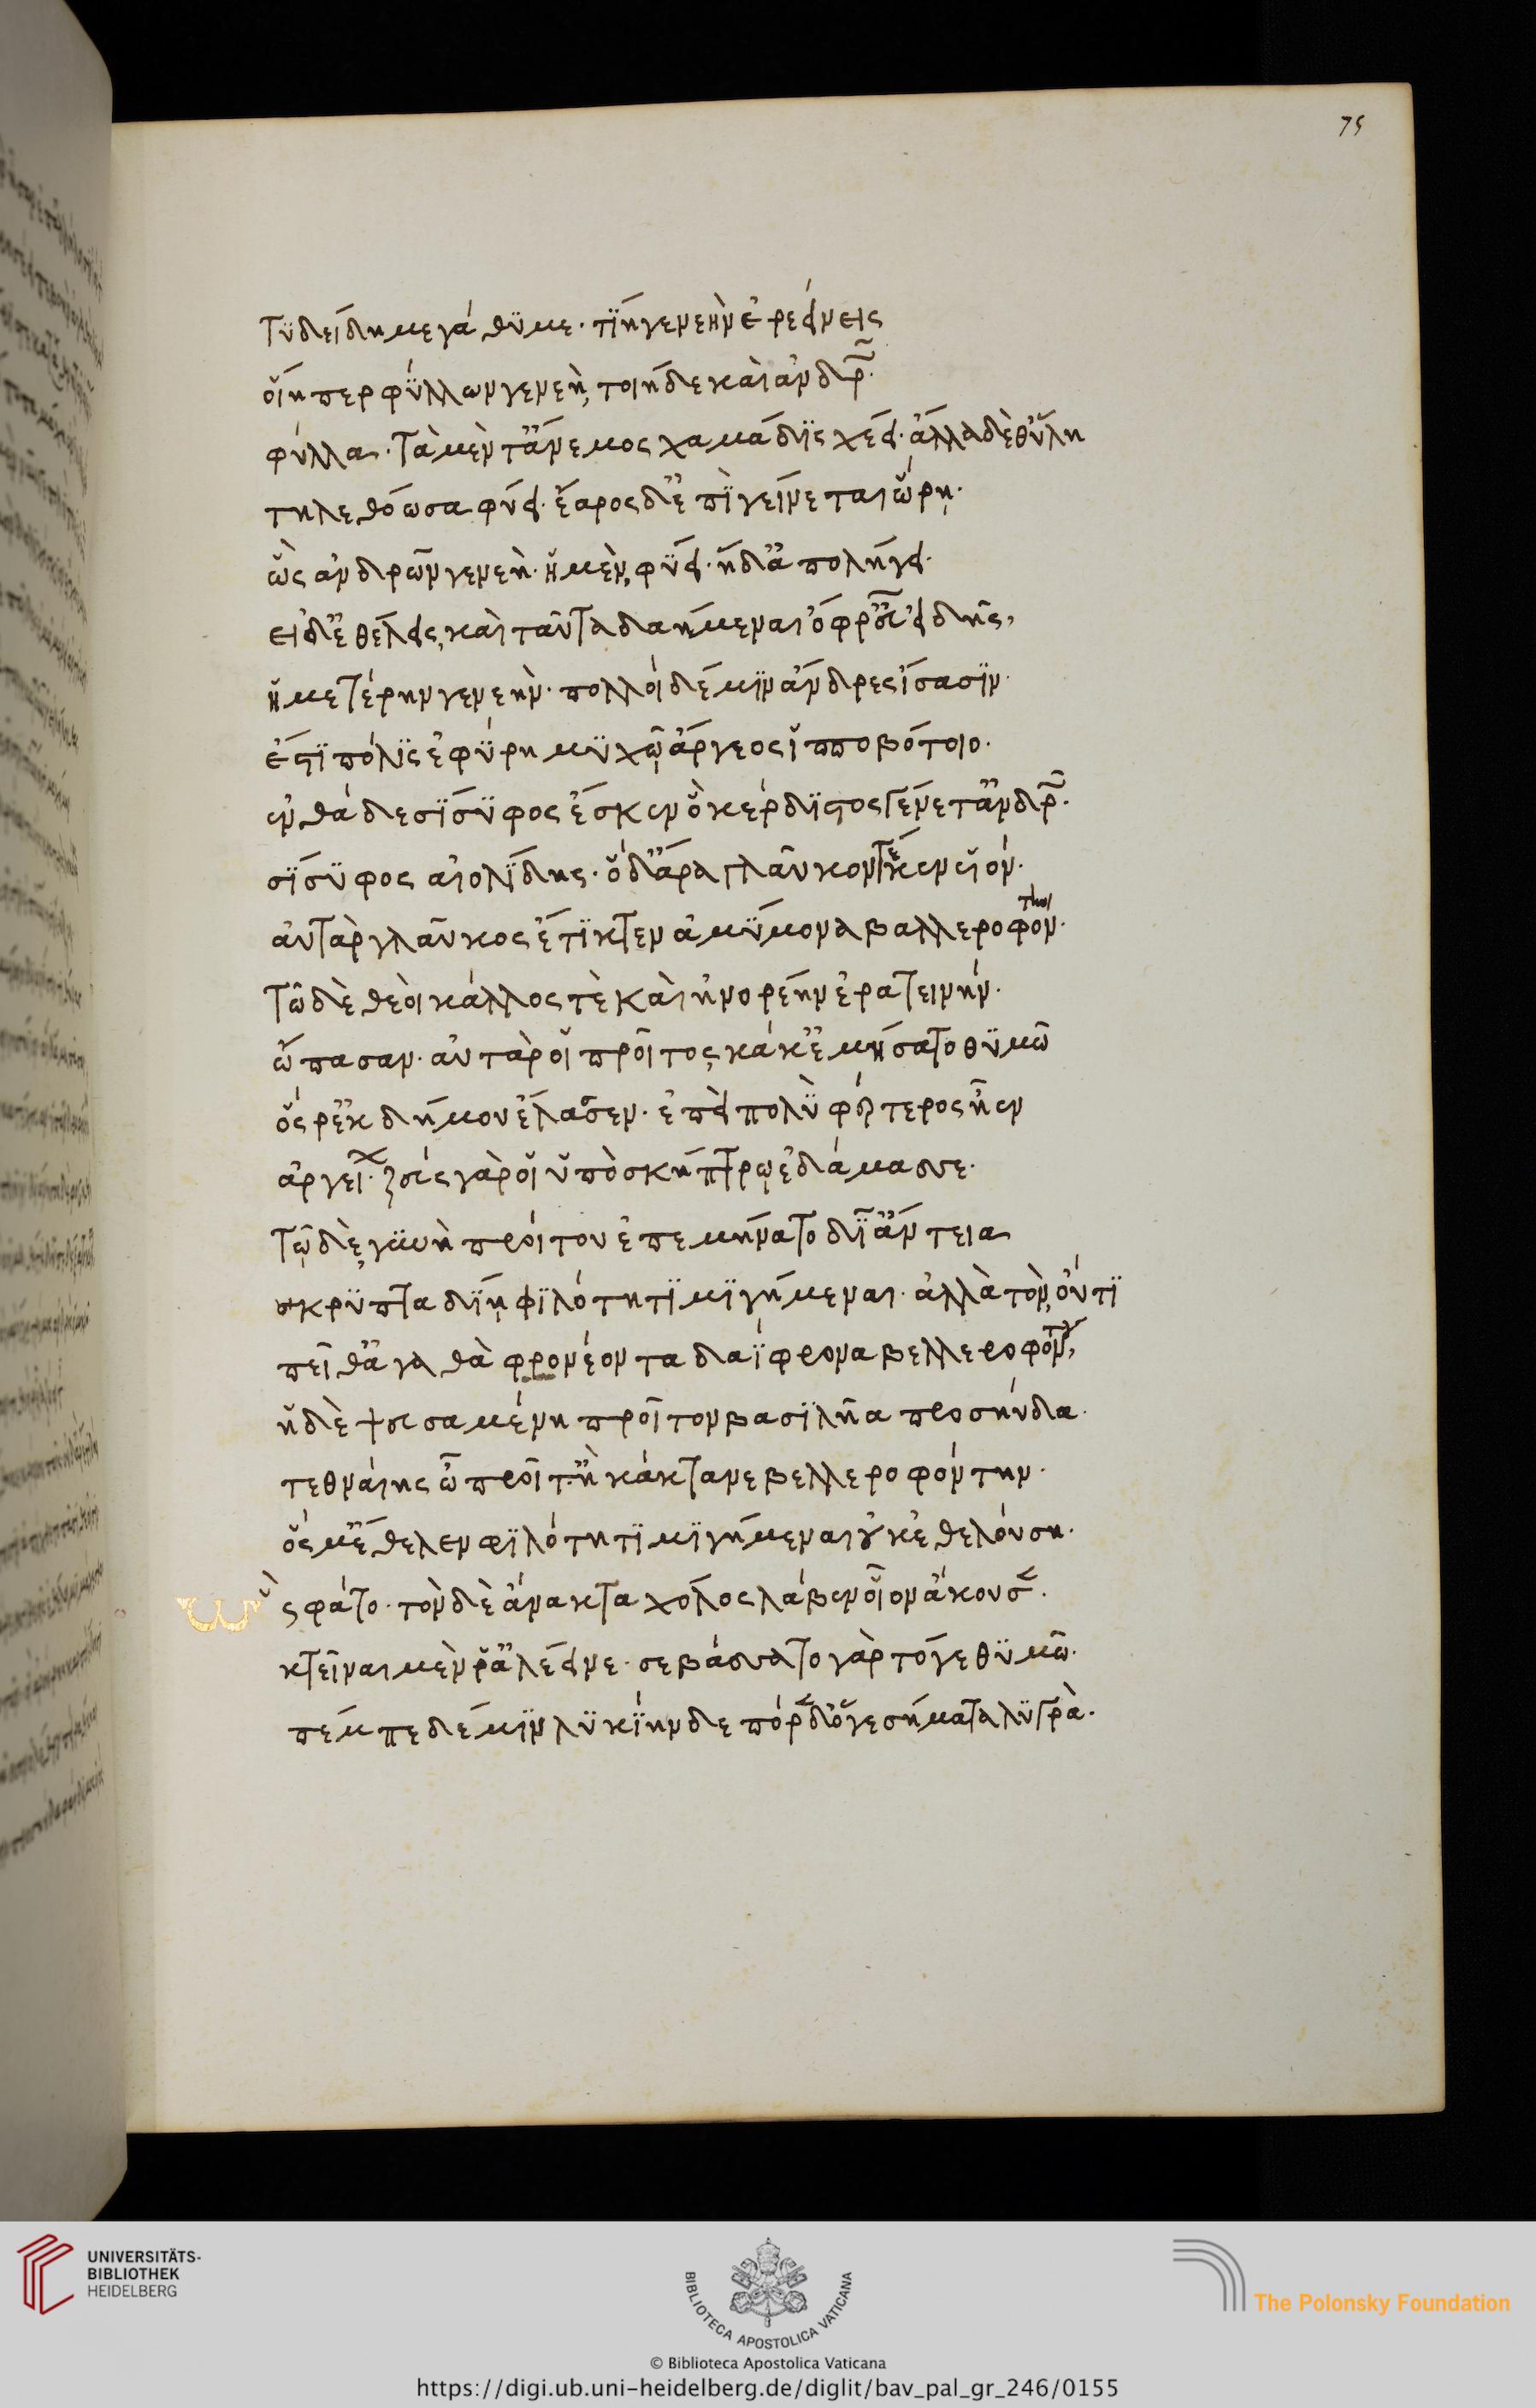 75
Τυδείδη μεγάθυμε· τίη γενεὴν ἐρεείνεις
οἵη περ φύλλων γενεὴ, τοίη δὲ καὶ ἀνδρῶν·
φύλλα· τὰ μὲν τ' ἄνεμος χαμάδις χέει· ἄλλα δὲ θ' ὕλη
τηλεθόωσα φύει· ἔαρος δ' ἐπιγείνεται ὥρη·
ὣς ἀνδρῶν γενεὴ· ἡ μὲν, φύει· ἡ δ' ἀπολήγει·
εἰ δ' ἐθέλεις, καὶ ταῦτα δαήμεναι ὄφρ' εὖ εἰδῇς,
ἡμετέρην γενεήν· πολλοὶ δέ μιν ἄνδρες ἴσασιν·
ἔστι πόλις ἐφύρη μυχῷ ἄργεος ἱπποβότοιο·
ἐνθάδε σίσυφος ἔσκεν ὃ κέρδιστος γένετ' ἀνδρῶν·
σίσυφος αἰολίδης· ὁ δ' ἄρα γλαῦκον τέκεν υἱόν·
αὐτὰρ γλαῦκος ἔτικτεν ἀμύμονα βαλλεροφόντην·
Τῶ δὲ θεοὶ κάλλος τὲ καὶ ἠνορέην ἐρατεινήν·
ὤπασαν· αὐτὰρ οἱ προῖτος, κάκ' ἐμήσατο θυμῶ
ὅς ῥ' ἐκ δήμου ἔλασσεν· ἐπεὶ πολὺ φέρτερος ἦεν
ἀργείων· ζεὺς γὰρ οἱ ὑπὸ σκήπτρῳ ἐδάμασσε·
Τῷ δὲ, γυνὴ προίτου ἐπεμήνατο δῖ' ἄντεια
κρυπταδίῃ φιλότητι μιγήμεναι· ἀλλὰ τὸν, οὔτι
πεῖθ' ἀγαθὰ φρονέοντα δαΐφρονα βελλεροφόντην,
ἡ δὲ ψευσαμένη προῖτον βασιλῆα προσηύδα·
τεθναίης ὦ προῖτ' ἢ κάκτανε βελλεροφόντην·
ὅς μ' ἔθελεν φιλότητι μιγήμεναι οὐκ ἐθελούσῃ·
Ὣς φάτο· τὸν δὲ ἄνακτα χόλος λάβεν οἷον ἄκουσεν·
κτεῖναι μὲν ῥ' ἀλέεινε· σεβάσσατο γὰρ τόγε θυμῶ·
πέμπε δέ μιν λυκίην δε πόρεν δ' ὅγε σήματα λυγρὰ·
UNIVERSITÄTS-
BIBLIOTHEK
HEIDELBERG
BIBLIOTECA APOSTOLICA VATICANA
The Polonsky Foundation
© Biblioteca Apostolica Vaticana
https://digi.ub.uni-heidelberg.de/diglit/bav_pal_gr_246/0155